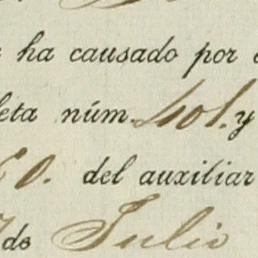 ha causado por
eta núm. 401. y
60. del auxiliar
7 de Julio